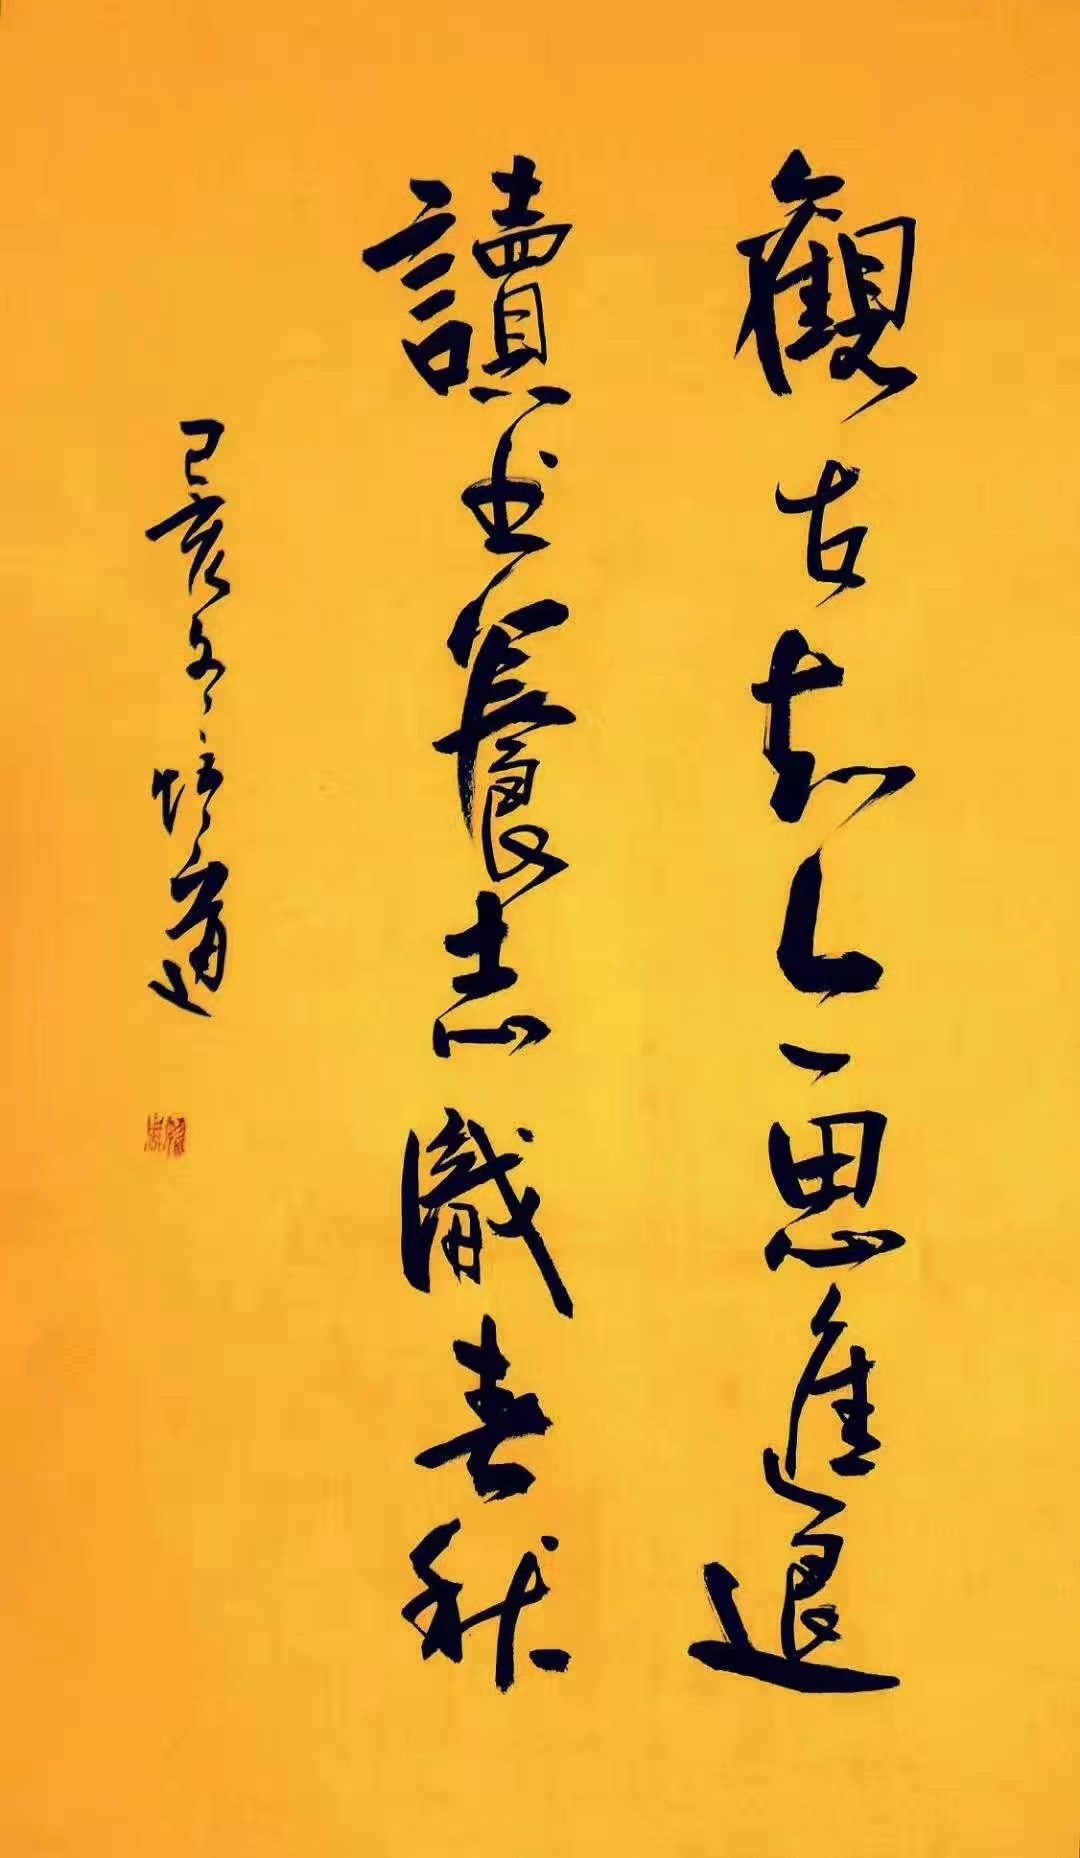 觀古知今思進退
讀书養志識春秋
己亥冬悟庸